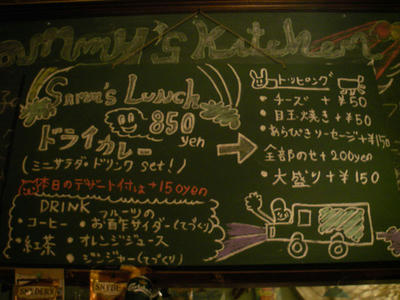 ammy's Kitchen
Samm's Lunch
850 yen
ドライカレー
(ミニサラダ・ドリンク set!)
本日のデザート付は +150yen
DRINK
・コーヒー
・紅茶
・フルーツのお酢サイダー(てづくり)
・オレンジジュース
・ジンジャー(てづくり)
トッピング
・チーズ + ¥50
・目玉焼き + ¥50
・あらびきソーセージ + ¥150
全部のせ +200yen
・大盛り + ¥150
SNYDER'S